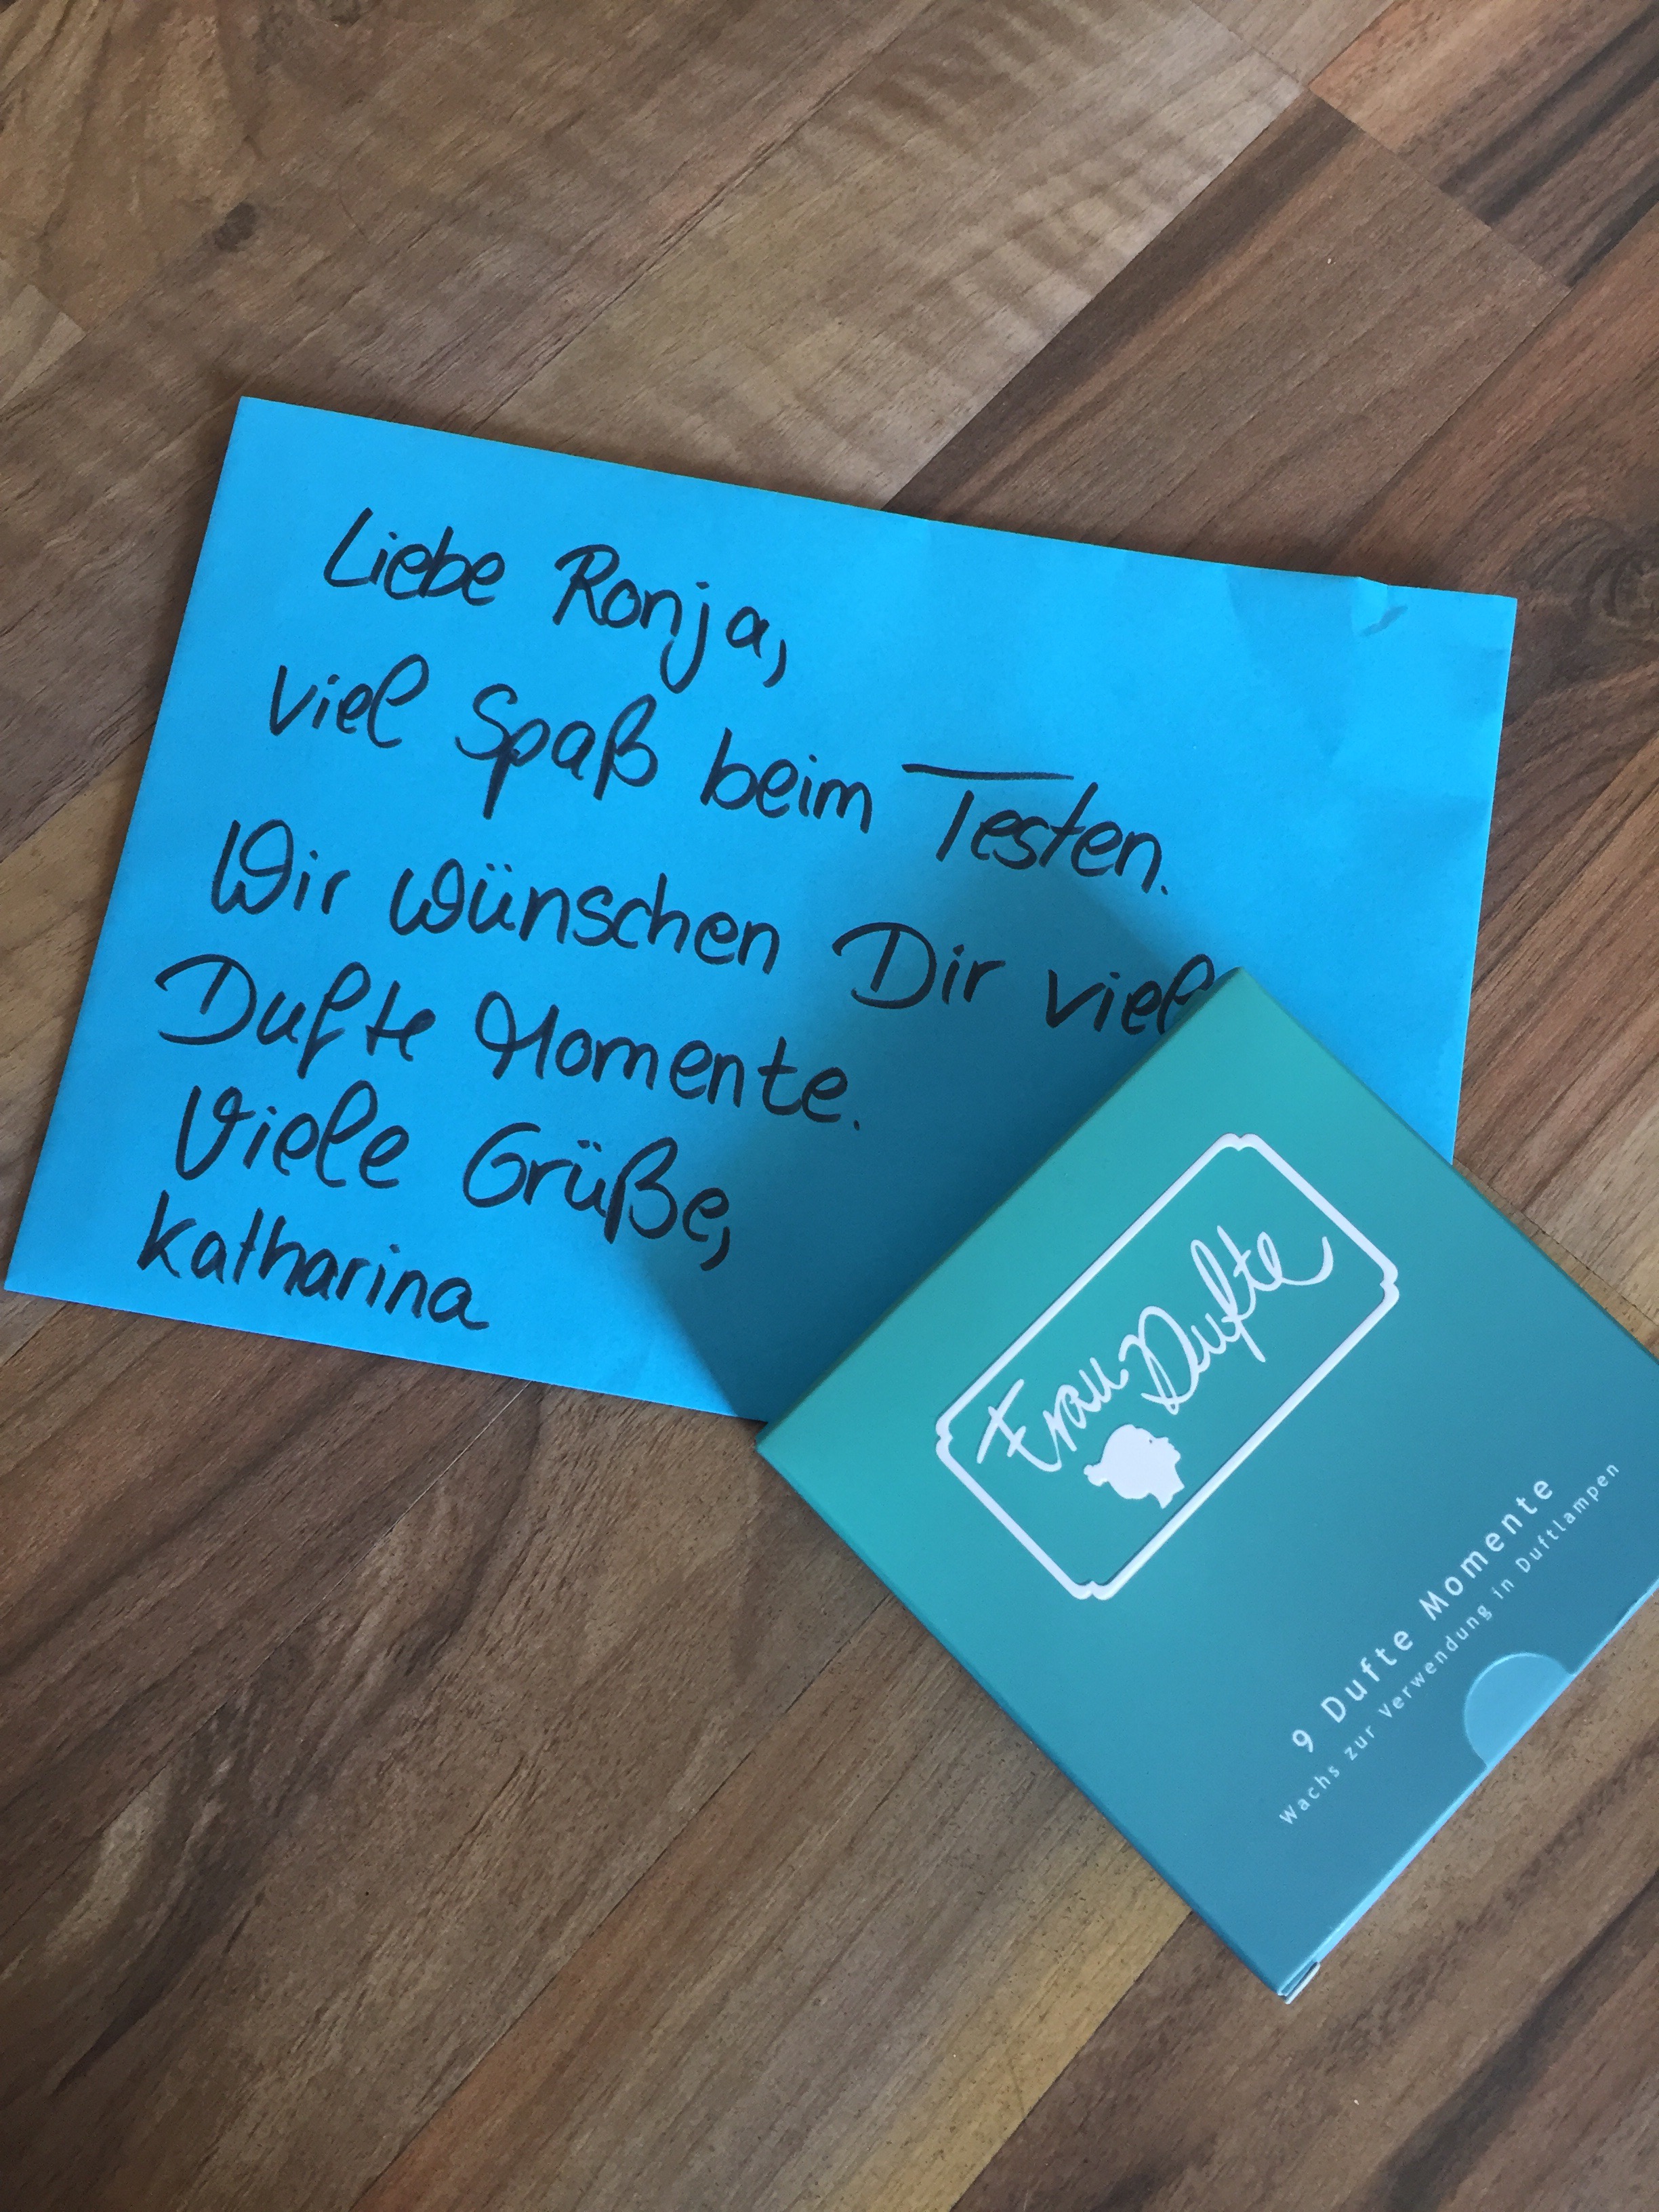 Liebe Ronja,
viel Spaß beim Testen.
Wir wünschen Dir viel
Dufte Momente.
Viele Grüße,
Katharina
Frau Dufte
9 Dufte Momente
Wachs zur Verwendung in Duftlampen